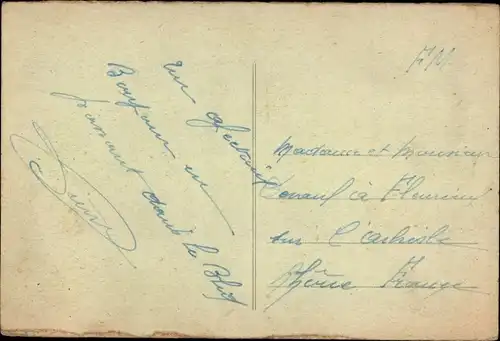 Un affectueux
Bonjour en
passant dans le Bled
F.M.
Madame et Monsieur
à Fleurieu
sur l'arbresle
Rhône France